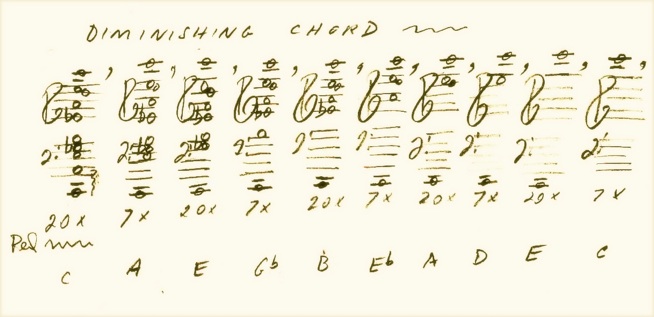 DIMINISHING CHORD
20x 7x 20x 7x 20x 7x 20x 7x 20x 7x
Ped
C A E Gb B Eb A D E C